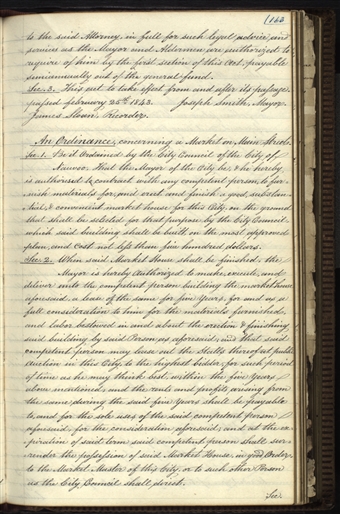 163
to the said Attorney, in full for such legal advice and
services as the Mayor and Aldermen are authorized to
require of him by the first section of this Act, payable
semiannually out of the general fund.
Sec. 3. This act to take effect from and after its passage.
passed February 25th 1843. Joseph Smith, Mayor.
James Sloan, Recorder.
An Ordinance, concerning a Market on Main Street.
Sec. 1. Be it Ordained by the City Council of the City of
Nauvoo. That the Mayor of the City be, & he hereby
is authorised to contract with any competent person, to fur-
nish materials for, and erect and finish a good, substan-
tial, & convenient market house for this City, on the ground
that shall be selected for that purpose by the City Council
which said building shall be built on the most approved
plan, and cost not less than five hundred dollars.
Sec. 2. When said Market House shall be finished, the
Mayor is hereby authorized to make, execute, and
deliver unto the competent person building the market house
aforesaid, a lease of the same for five Years, for and as a
full consideration to him for the materials furnished,
and labor bestowed in and about the erection & finishing
said building by said Person as aforesaid; and that said
competent person may lease out the Stalls thereof at public
Auction in this City, to the highest bidder, for such period
of time as he may think best, within the five Years
above mentioned, and the rents and profits arising from
the same during the said five Years shall be payable
to, and for the sole use, of the said competent person
aforesaid, for the consideration aforesaid; and at the ex-
piration of said term said competent person shall sur-
render the possession of said Market House, in good Order,
to the Market Master of this City, or to such other Person
as the City Council shall direct.
Sec.